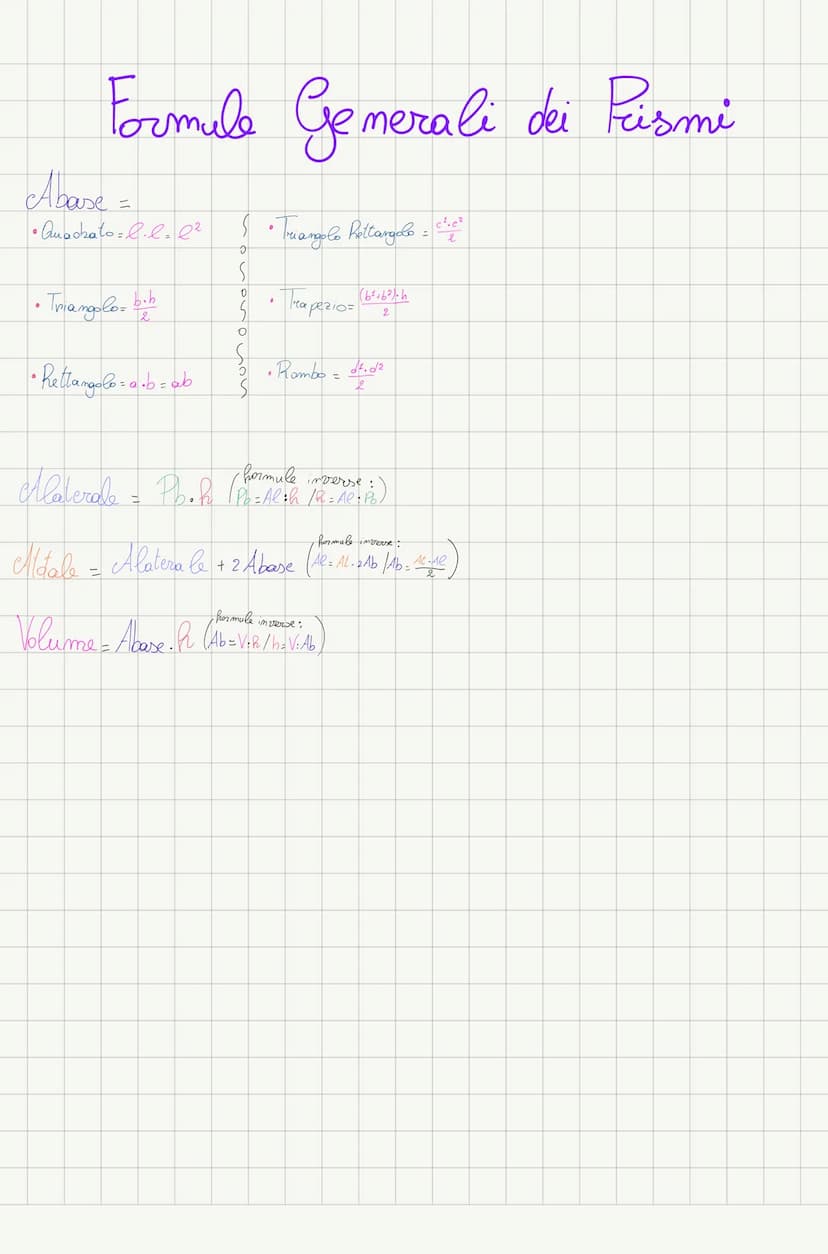 Formule Generali dei Prismi
Abase =
• Quadrato = l·l = l²
• Triangolo Rettangolo = c¹·c²/2
• Triangolo = b·h/2
• Trapezio = (b¹+b²)·h/2
• Rettangolo = a·b = ab
• Rombo = d1·d2/2
Alaterale = Pb·h (formule inverse: Pb = Al:h / h = Al:Pb)
Atotale = Alaterale + 2Abase (formule inverse: Al = At - 2Ab / Ab = At-Al/2)
Volume = Abase·h (formule inverse: Ab = V:h / h = V:Ab)